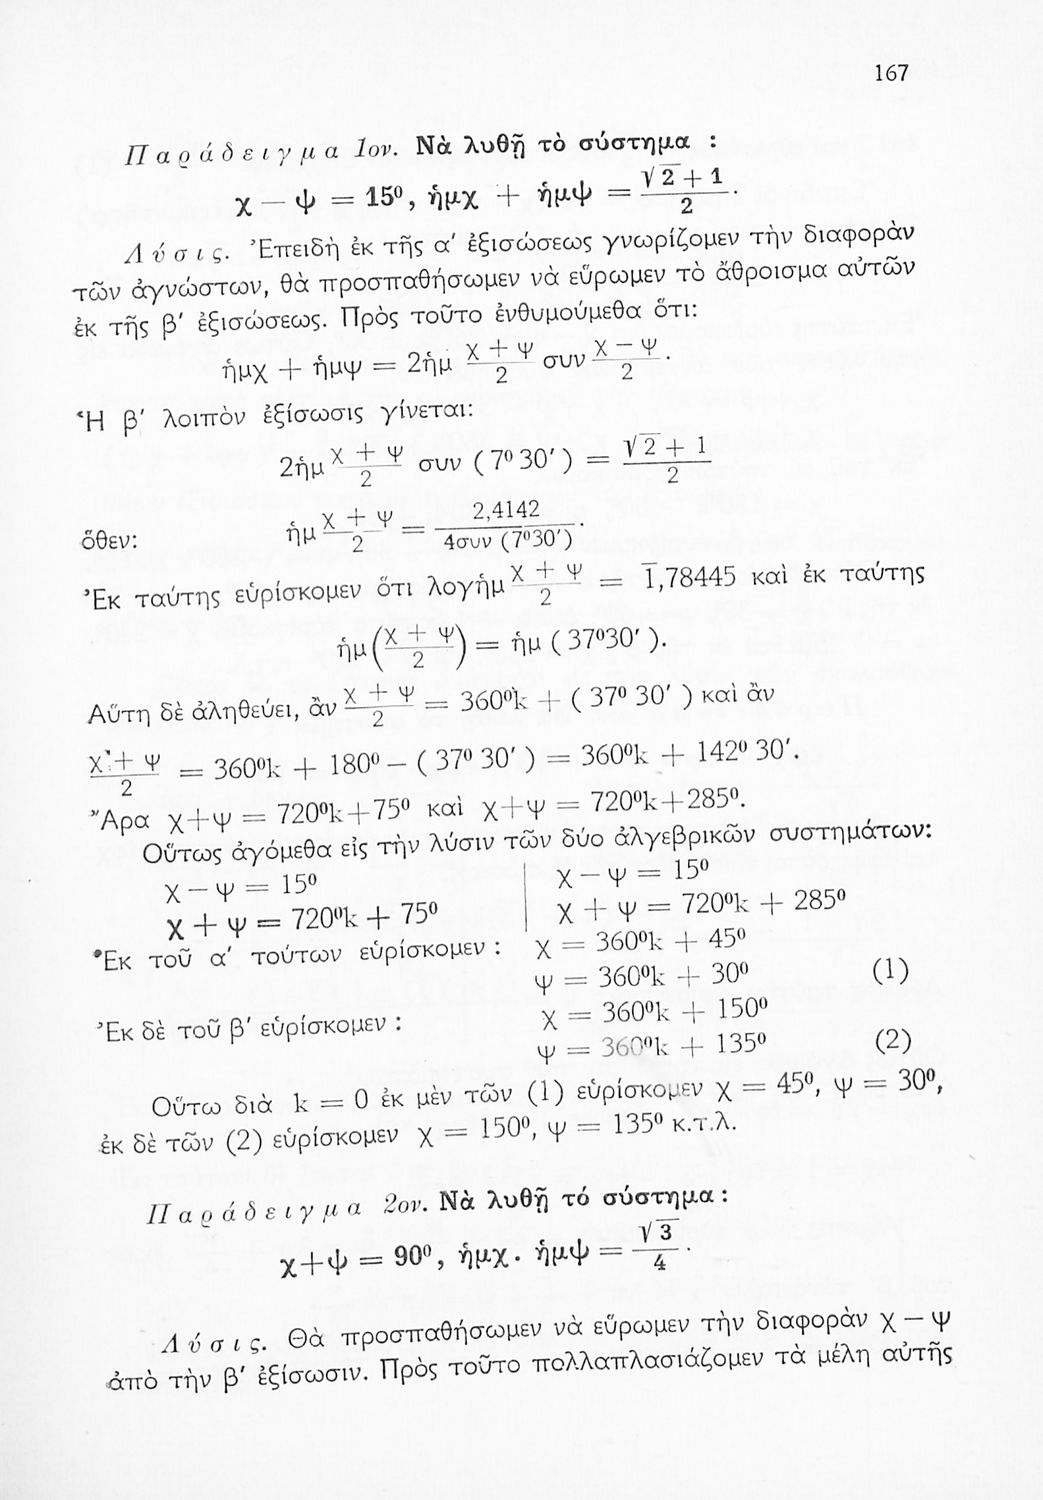 167
Παράδειγμα 1ον. Νὰ λυθῇ τὸ σύστημα :
χ — ψ = 15⁰, ἡμχ + ἡμψ = (√2 + 1)/2.
Λύσις. Ἐπειδὴ ἐκ τῆς α′ ἐξισώσεως γνωρίζομεν τὴν διαφορὰν
τῶν ἀγνώστων, θὰ προσπαθήσωμεν νὰ εὕρωμεν τὸ ἄθροισμα αὐτῶν
ἐκ τῆς β′ ἐξισώσεως. Πρὸς τοῦτο ἐνθυμούμεθα ὅτι:
ἡμχ + ἡμψ = 2ἡμ (χ + ψ)/2 συν (χ — ψ)/2.
Ἡ β′ λοιπὸν ἐξίσωσις γίνεται:
2ἡμ (χ + ψ)/2 συν ( 7⁰ 30′ ) = (√2 + 1)/2
ὅθεν: ἡμ (χ + ψ)/2 = 2,4142/4συν (7⁰30′).
Ἐκ ταύτης εὑρίσκομεν ὅτι λογἡμ (χ + ψ)/2 = 1̅,78445 καὶ ἐκ ταύτης
ἡμ ((χ + ψ)/2) = ἡμ ( 37⁰30′ ).
Αὕτη δὲ ἀληθεύει, ἂν (χ + ψ)/2 = 360⁰k + ( 37⁰ 30′ ) καὶ ἂν
(χ + ψ)/2 = 360⁰k + 180⁰ — ( 37⁰ 30′ ) = 360⁰k + 142⁰ 30′.
Ἄρα χ+ψ = 720⁰k+75⁰ καὶ χ+ψ = 720⁰k+285⁰.
Οὕτως ἀγόμεθα εἰς τὴν λύσιν τῶν δύο ἀλγεβρικῶν συστημάτων:
χ — ψ = 15⁰ | χ — ψ = 15⁰
χ + ψ = 720⁰k + 75⁰ | χ + ψ = 720⁰k + 285⁰
Ἐκ τοῦ α′ τούτων εὑρίσκομεν : χ = 360⁰k + 45⁰
ψ = 360⁰k + 30⁰ (1)
χ = 360⁰k + 150⁰
Ἐκ δὲ τοῦ β′ εὑρίσκομεν :
ψ = 360⁰k + 135⁰ (2)
Οὕτω διὰ k = 0 ἐκ μὲν τῶν (1) εὑρίσκομεν χ = 45⁰, ψ = 30⁰,
ἐκ δὲ τῶν (2) εὑρίσκομεν χ = 150⁰, ψ = 135⁰ κ.τ.λ.
Παράδειγμα 2ον. Νὰ λυθῇ τό σύστημα :
χ+ψ = 90⁰, ἡμχ. ἡμψ = √3/4.
Λύσις. Θὰ προσπαθήσωμεν νὰ εὕρωμεν τὴν διαφορὰν χ — ψ
ἀπὸ τὴν β′ ἐξίσωσιν. Πρὸς τοῦτο πολλαπλασιάζομεν τὰ μέλη αὐτῆς